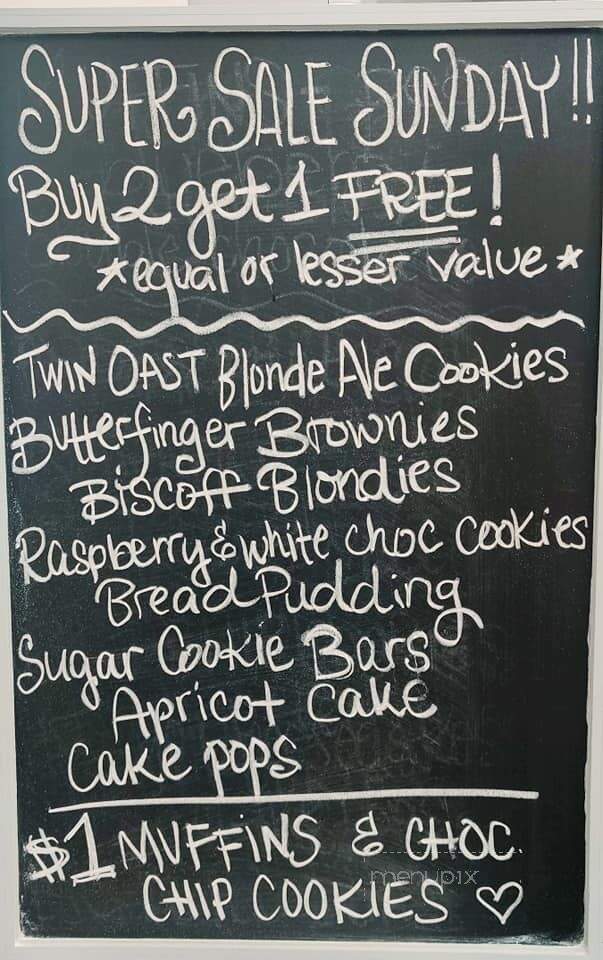 SUPER SALE SUNDAY!!
Buy 2 get 1 FREE!
*equal or lesser value*
TWIN OAST Blonde Ale Cookies
Butterfinger Brownies
Biscoff Blondies
Raspberry & white choc cookies
Bread Pudding
Sugar Cookie Bars
Apricot Cake
Cake pops
$1 MUFFINS & CHOC
CHIP COOKIES ♡
menupix